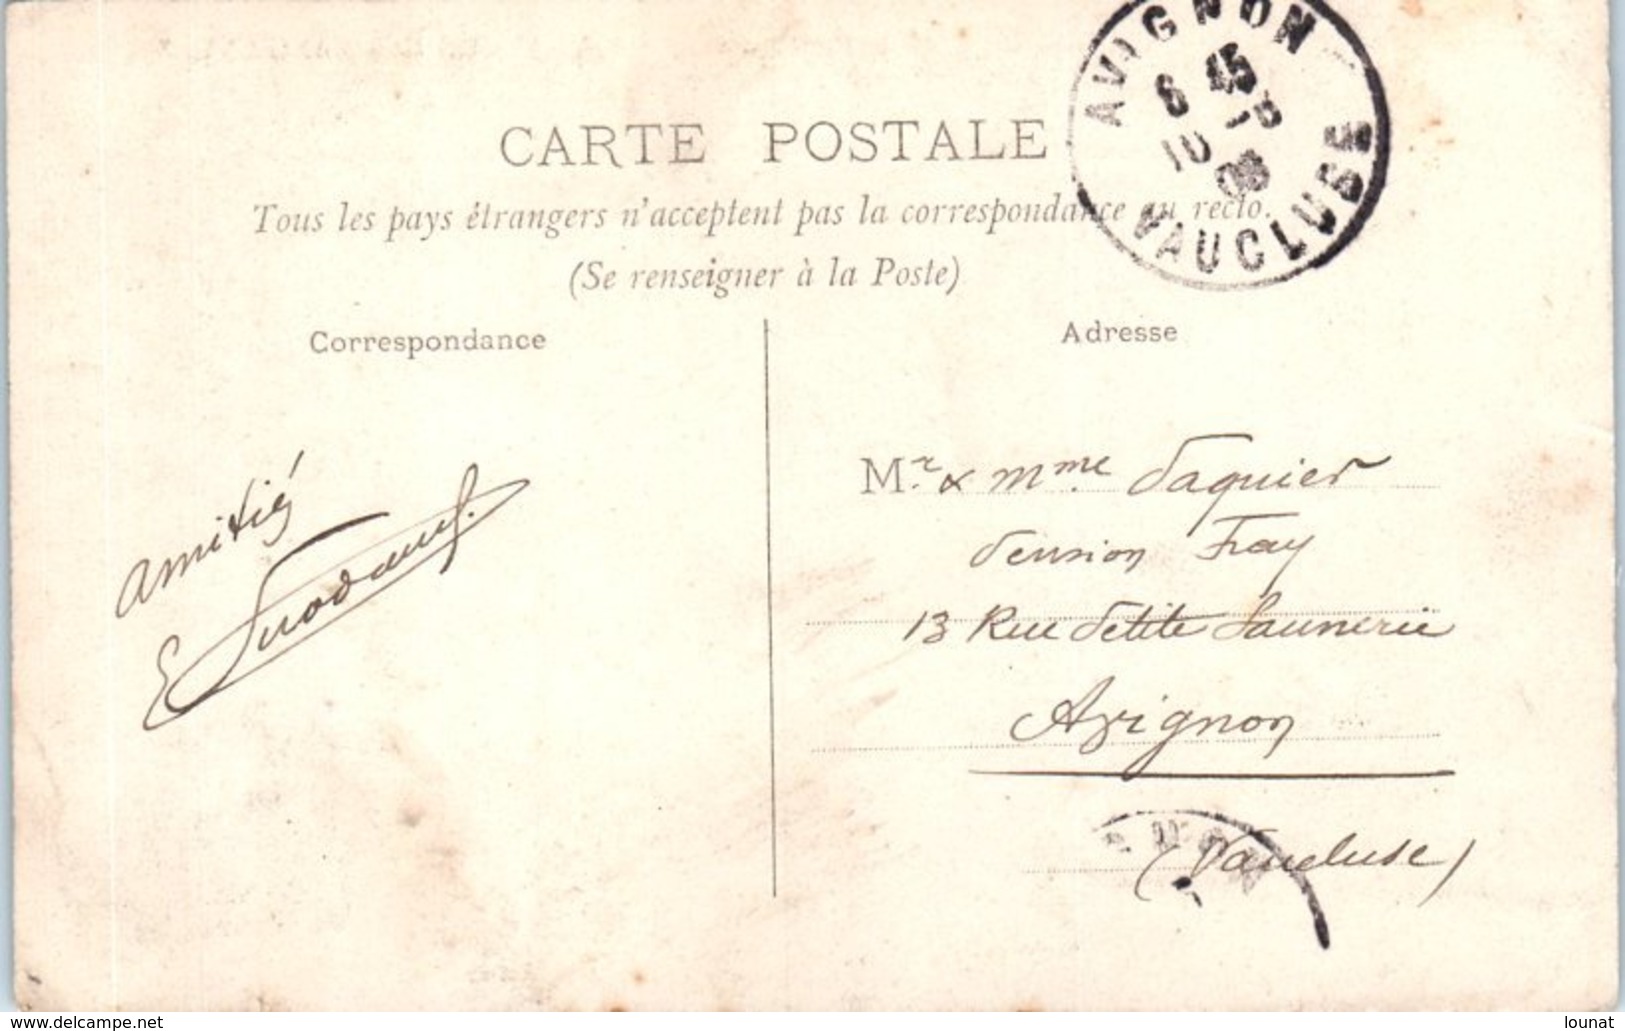 AVIGNON
6 45
10 -8
08
VAUCLUSE
CARTE POSTALE
Tous les pays étrangers n'acceptent pas la correspondance au recto.
(Se renseigner à la Poste)
Correspondance
Adresse
amitiés
Mr. & Mme. Paquier
Pension Fray
13 Rue Petite Saunerie
Avignon
(Vaucluse)
www.delcampe.net
lounat